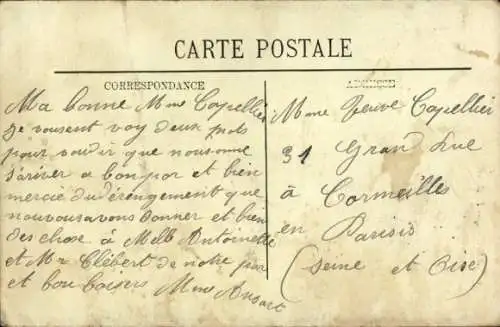 CARTE POSTALE
CORRESPONDANCE
ADRESSE
Ma bonne Mme Capellier
Je vousent voy deux mots
pour voudir que nous onne
s'ariver a bon por et bien
mercie du dérengement que
nouvousavons donner et bien
des chose à Melle Antoinette
et Mr Clébert de notre par
et bon baisers Mme Ansart
Mme Veuve Capellier
31 Grand Rue
à Cormeilles
en Parisis
(Seine et Oise)